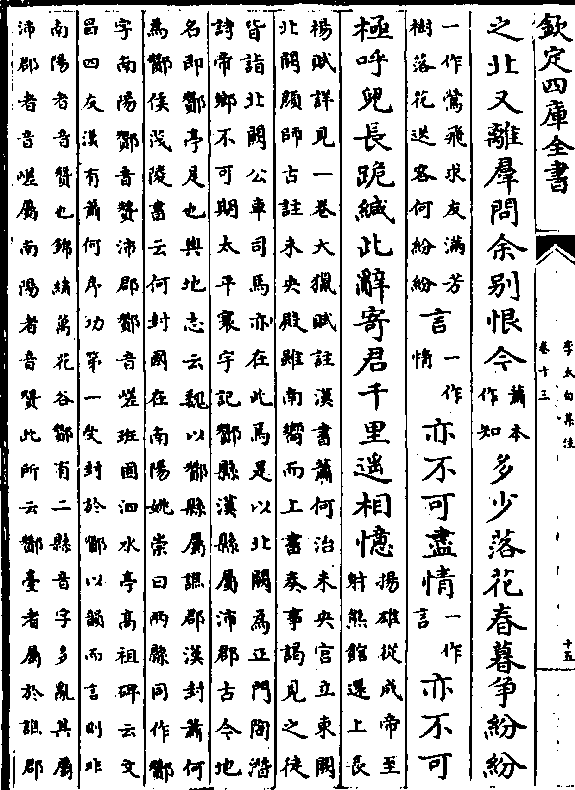 欽定四庫全書
李太白集注
卷十三
十五
之北又離羣問余别恨今蕭本作知多少落花春暮争紛紛
一作鶯飛求友滿芳
樹落花送客何紛紛
言一作情亦不可盡情一作言亦不可
極呼兒長跪緘此辭寄君千里遥相憶
揚雄從成帝至
射熊館還上長
楊賦詳見一卷大獵賦註漢書蕭何治未央宫立東闕
北闕顔師古註未央殿雖南嚮而上書奏事謁見之徒
皆詣北闕公車司馬亦在此焉是以北闕為正門陶潛
詩帝鄉不可期太平寰宇記酇縣漢縣屬沛郡古今地
名即酇亭是也輿地志云魏以酇縣屬譙郡漢封蕭何
為酇侯茂陵書云何封國在南陽姚崇曰兩縣同作酇
字南陽酇音贊沛郡酇音嵯班固泗水亭高祖碑云文
昌四友漢有蕭何序功第一受封於酇以韻而言則非
南陽者音贊也錦繡萬花谷酇有二縣音字多亂其屬
沛郡者音嵯屬南陽者音贊此所云酇臺者屬於譙郡